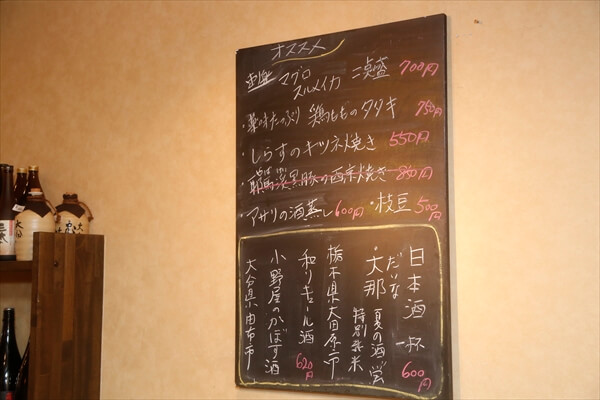 オススメ
刺身 マグロ スルメイカ 二点盛 700円
・薬味たっぷり 鶏もものタタキ 750円
・しらすのキツネ焼き 550円
・耶馬渓黒豚の西京焼き 850円
・アサリの酒蒸し 600円 ・枝豆 500円
日本酒 一杯 600円
だいな
・大那 夏の酒 蛍
特別純米
栃木県大田原市
和リキュール酒 620円
小野屋のかぼす酒
大分県由布市